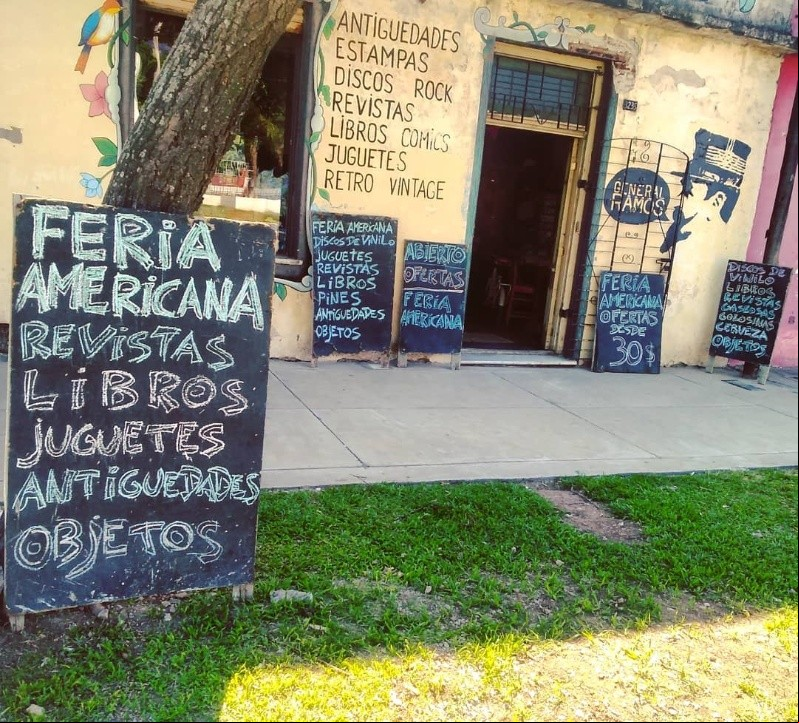 ANTIGUEDADES
ESTAMPAS
DISCOS ROCK
REVISTAS
LIBROS COMICS
JUGUETES
RETRO VINTAGE
GENERAL
RAMOS
FERIA
AMERICANA
REVISTAS
LIBROS
JUGUETES
ANTIGUEDADES
OBJETOS
FERIA AMERICANA
DISCOS DE VINILO
JUGUETES
REVISTAS
LIBROS
PINES
ANTIGUEDADES
OBJETOS
ABIERTO
OFERTAS
FERIA
AMERICANA
FERIA
AMERICANA
OFERTAS
DESDE
30$
DISCOS DE
VINILO
LIBROS
REVISTAS
GASEOSAS
GOLOSINAS
CERVEZA
OBJETOS